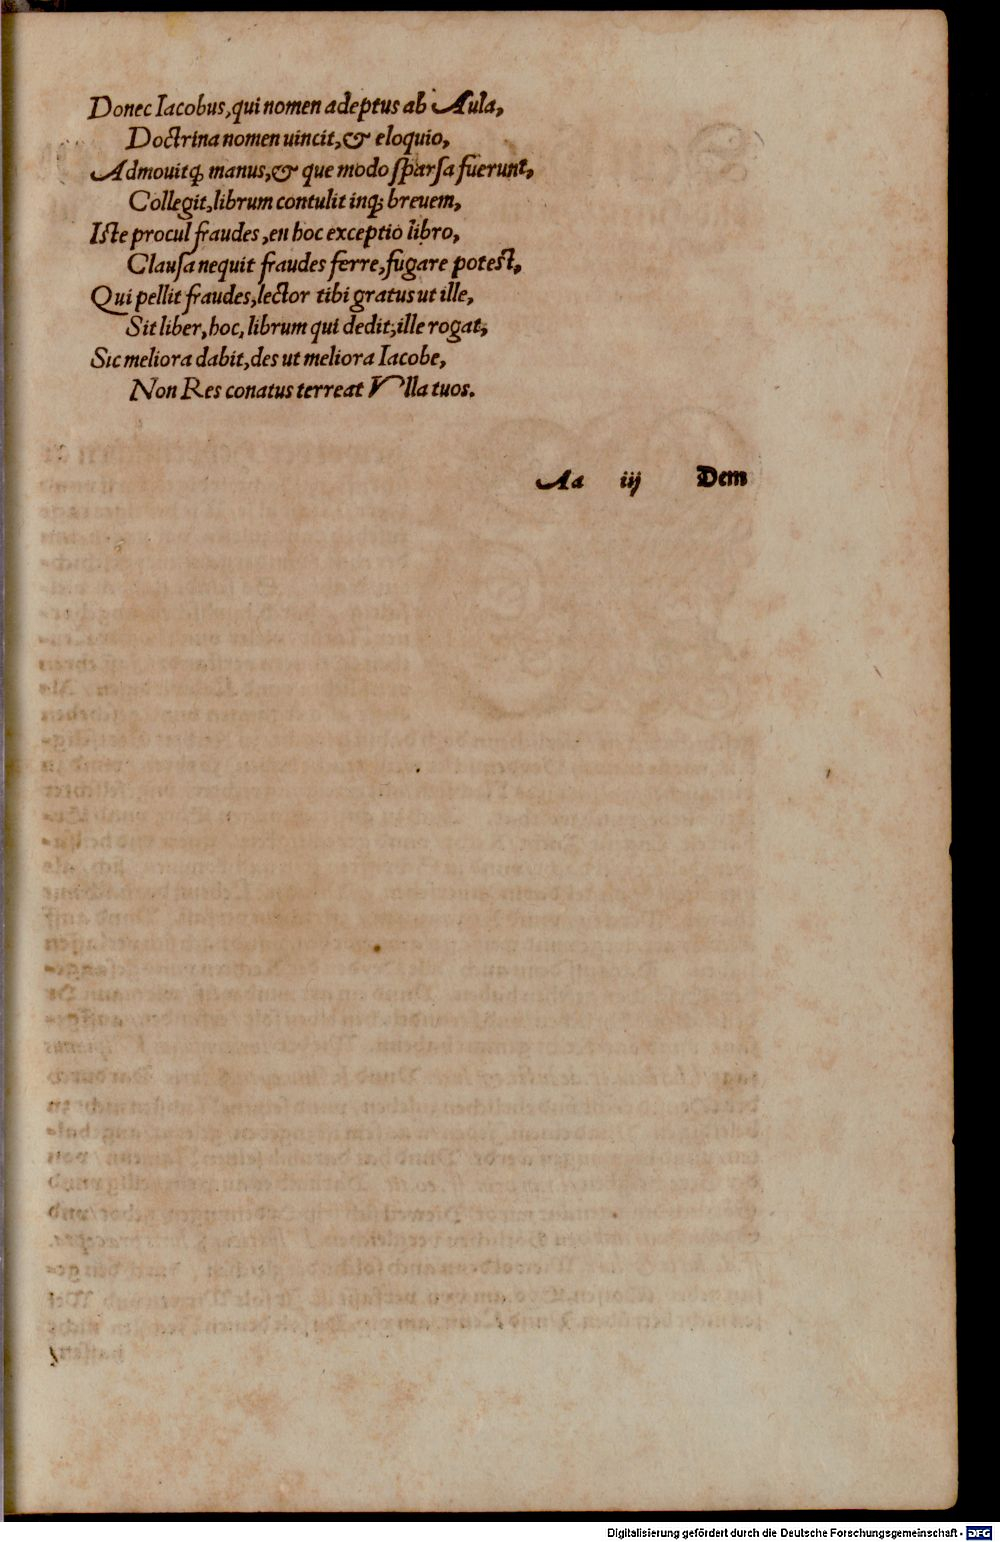 Donec Iacobus, qui nomen adeptus ab Aula,
Doctrina nomen uincit, & eloquio,
Admouitq; manus, & que modo sparsa fuerunt,
Collegit, librum contulit inq; breuem,
Iste procul fraudes, en hoc exceptio libro,
Clausa nequit fraudes ferre, fugare potest,
Qui pellit fraudes, lector tibi gratus ut ille,
Sit liber, hoc, librum qui dedit, ille rogat,
Sic meliora dabit, des ut meliora Iacobe,
Non Res conatus terreat Vlla tuos.
Aa iij Dem
Digitalisierung gefördert durch die Deutsche Forschungsgemeinschaft - DFG